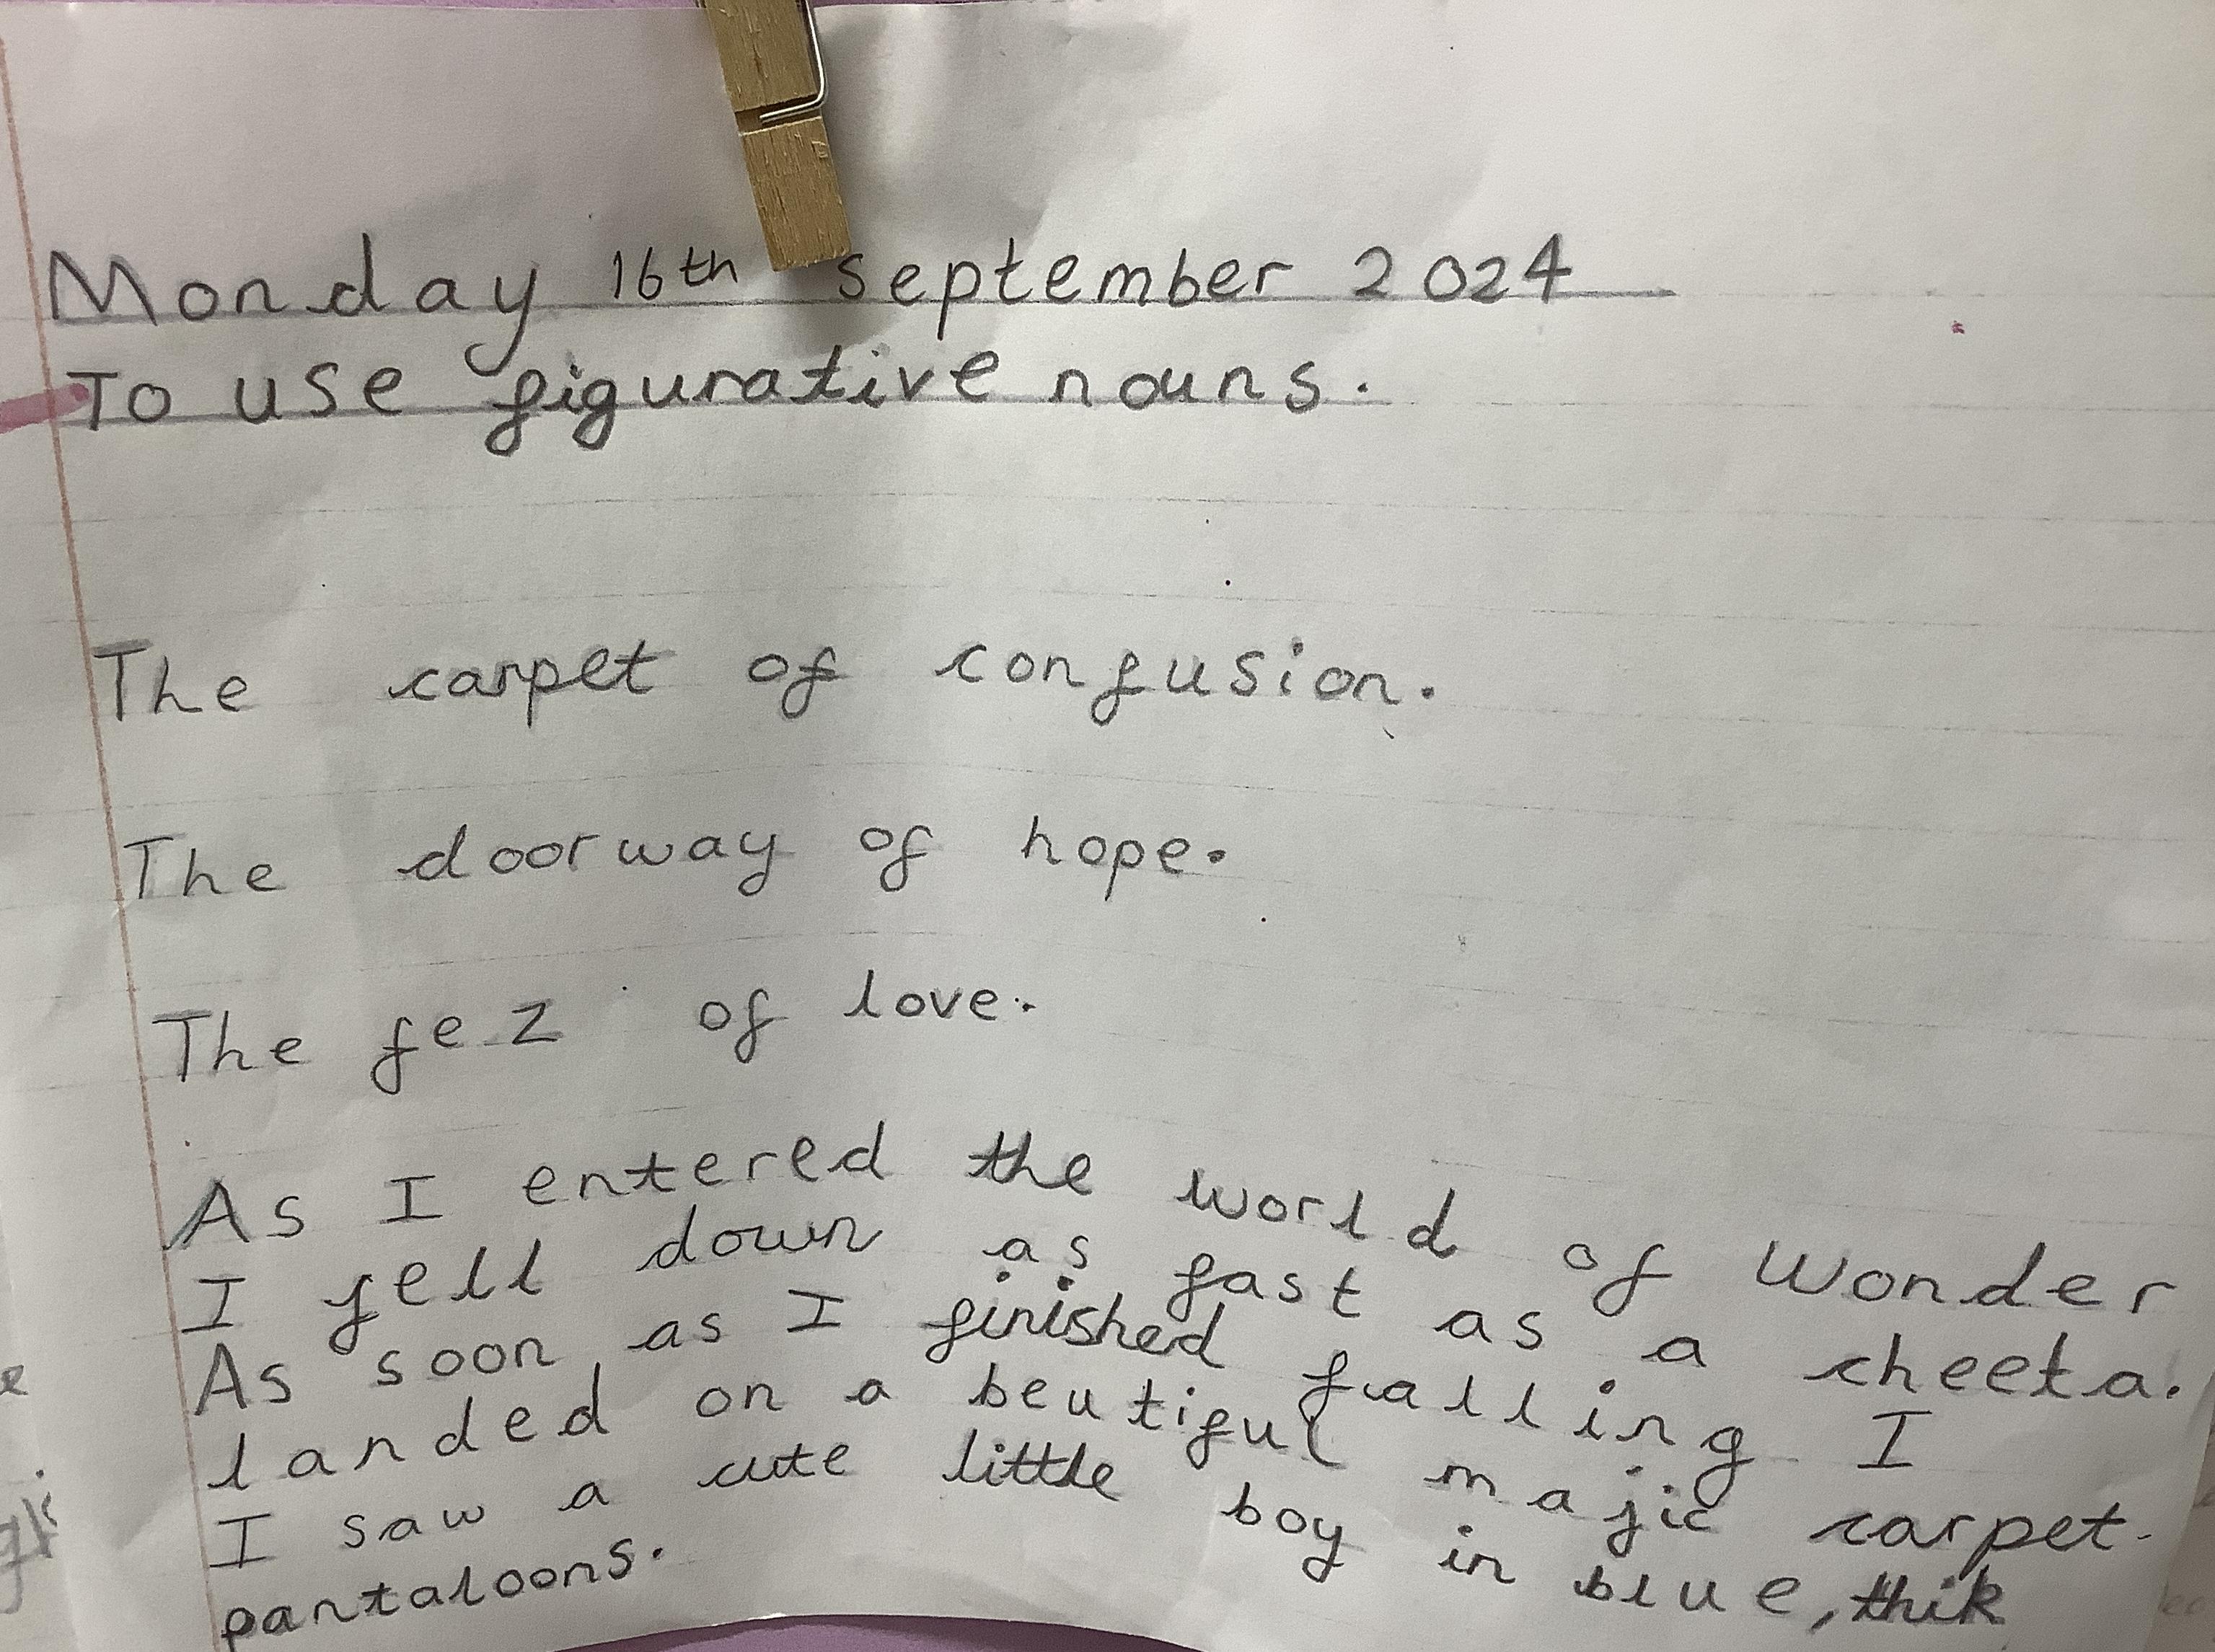 Monday 16th september 2024
To use figurative nouns.
The carpet of confusion.
The doorway of hope.
The fez of love.
As I entered the world of wonder
I fell down as fast as a cheeta.
As soon as I finished falling I
landed on a beutiful majic carpet.
I saw a cute little boy in blue, thik
pantaloons.